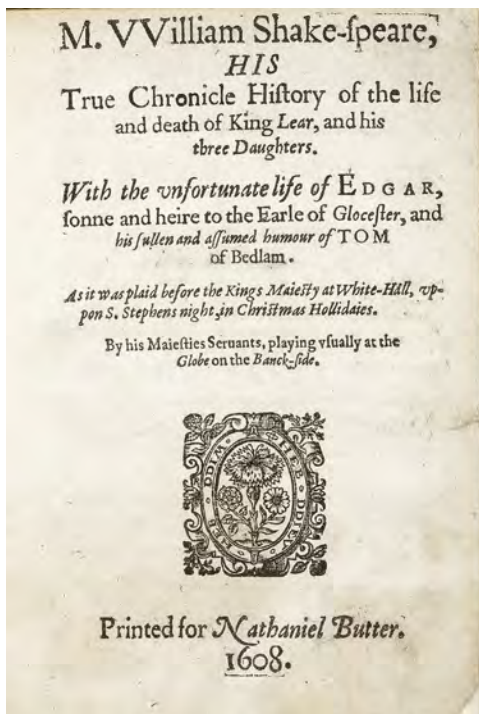 M. VVilliam Shake-ſpeare,
HIS
True Chronicle Hiſtory of the life
and death of King Lear, and his
three Daughters.
With the vnfortunate life of EDGAR,
ſonne and heire to the Earle of Gloceſter, and
his ſullen and aſſumed humour of TOM
of Bedlam.
As it was plaid before the Kings Maieſty at White-Hall, vp-
pon S. Stephens night, in Chriſtmas Hollidaies.
By his Maieſties Seruants, playing vſually at the
Globe on the Banck-ſide.
HEB DDIM HEB DDIEV
Printed for Nathaniel Butter.
1608.